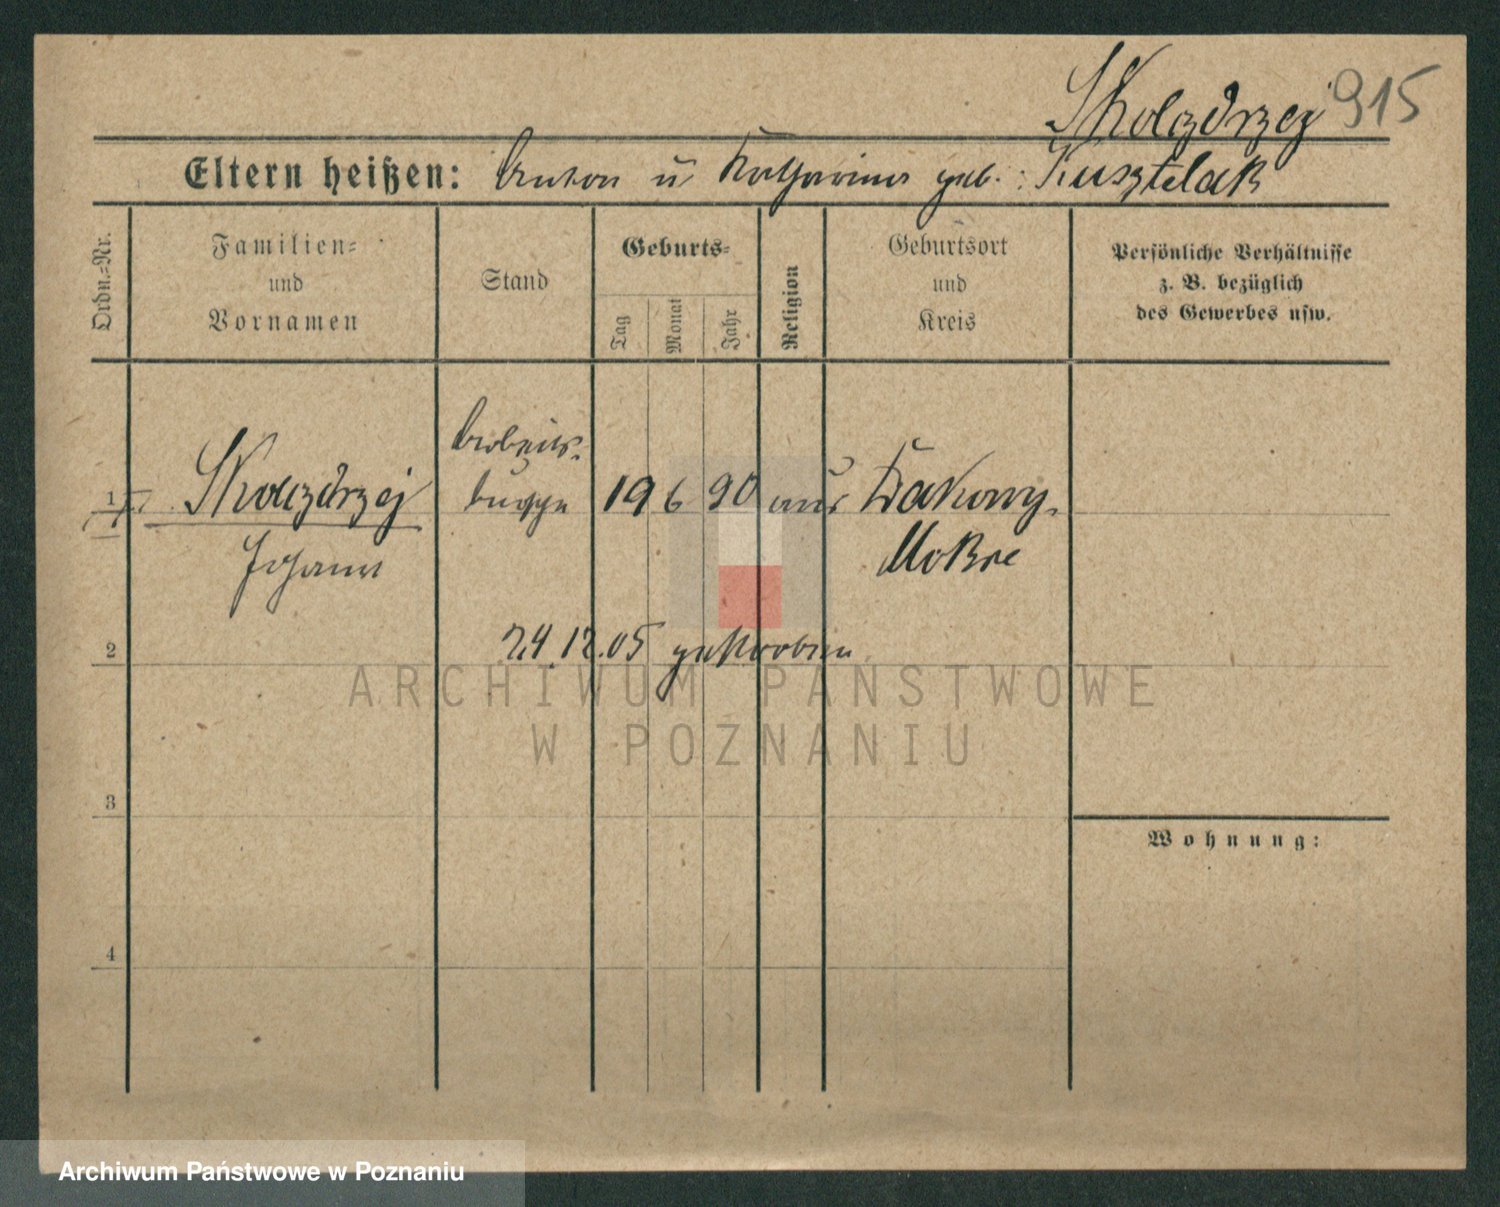 Skolozdrzej 915
Eltern heißen: Anton u Katharina geb.: Kusztelak
Ordn.-Nr.
Familien-
und
Vornamen
Stand
Geburts-
Tag
Monat
Jahr
Religion
Geburtsort
und
Kreis
Persönliche Verhältnisse
z. B. bezüglich
des Gewerbes usw.
Arbeits-
1 Skolozdrzej bursche 19 6 90 aus Lakowy-
Johann Mokre
2 24.12.05 gestorben
ARCHIWUM PAŃSTWOWE
W POZNANIU
3
Wohnung:
4
Archiwum Państwowe w Poznaniu